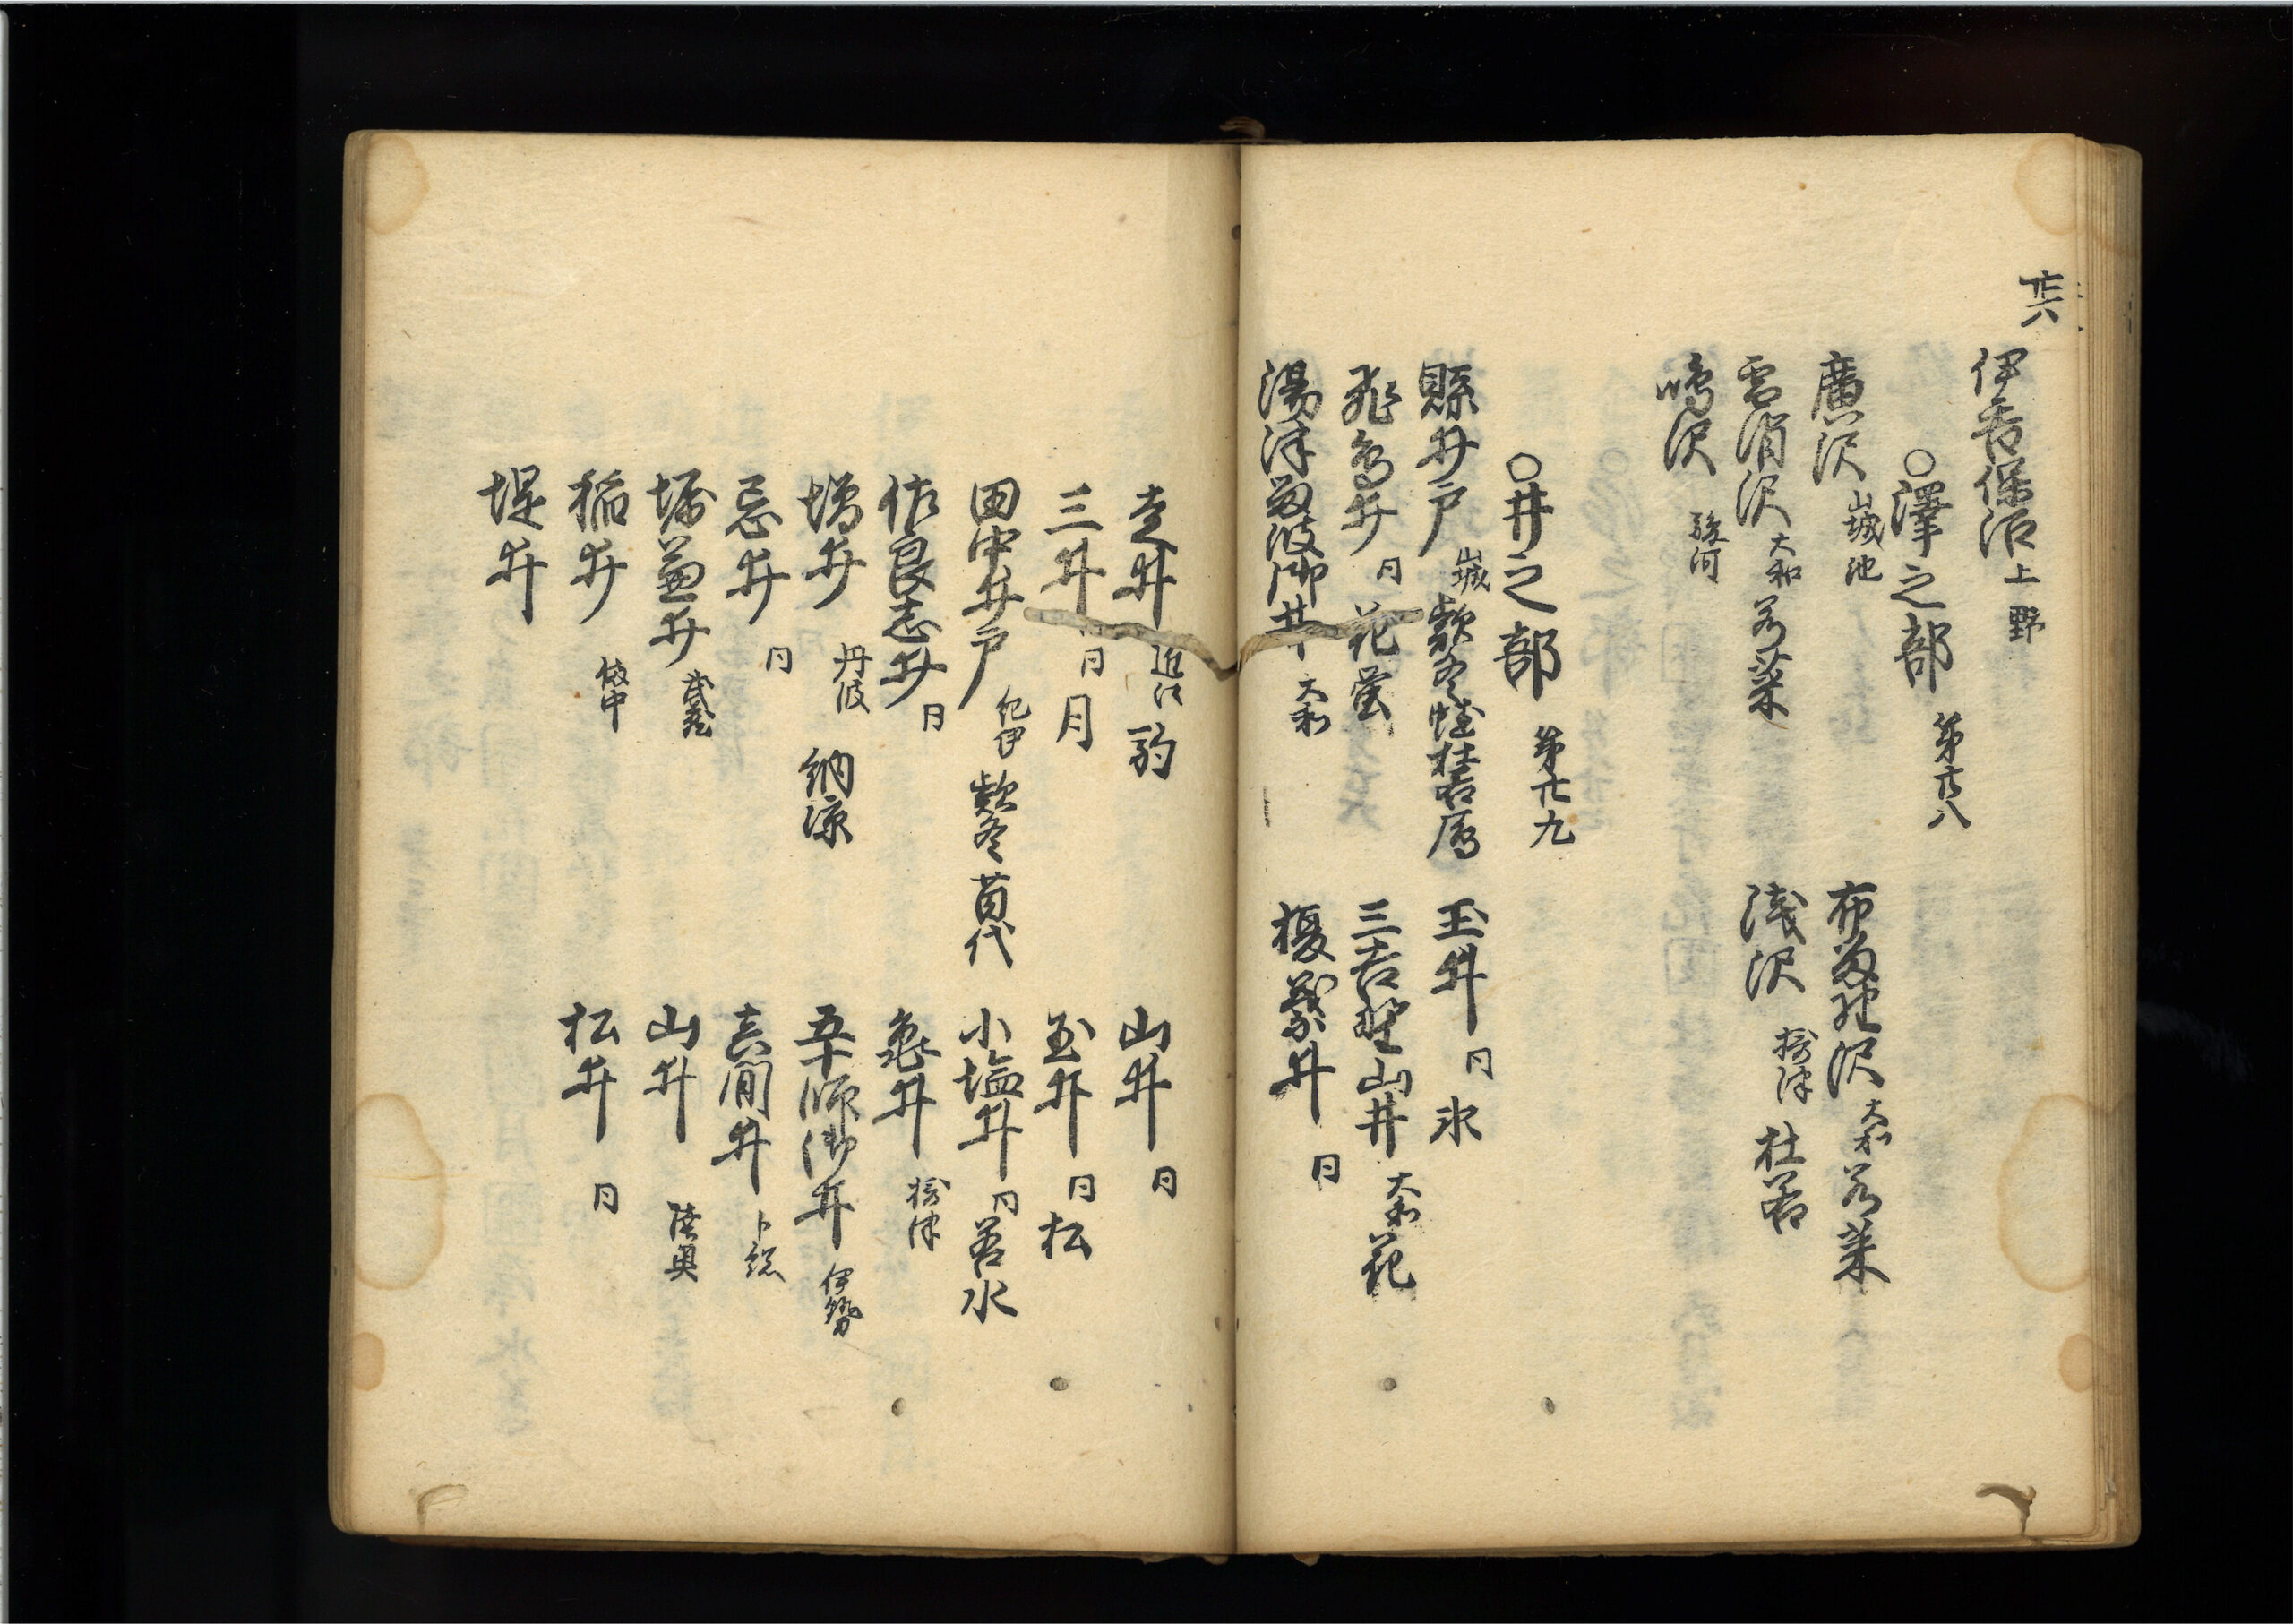 伊香保沼 上野
○澤之部 第廿八
廣沢 山城 池
布留野沢 大和 若菜
雪消沢 大和 若菜
浅沢 摂津 杜若
鳴沢 駿河
○井之部 第廿九
縣井戸 山城 款冬 蛙 杜若 鴈
玉井 同 氷
飛鳥井 同 花 蛍
三吉野山井 大和 花
湯津留波御井 大和
榎葉井 同
走井 近江 駒
山井 同
三井 同 月
玉井 同 松
田中井戸 紀伊 款冬 苗代
小塩井 同 若水
佐良志井 同
亀井 摂津
増井 丹波 納涼
五十師御井 伊勢
忌井 同
真間井 下総
堀兼井 武蔵
山井 陸奥
稲井 備中
松井 同
堤井